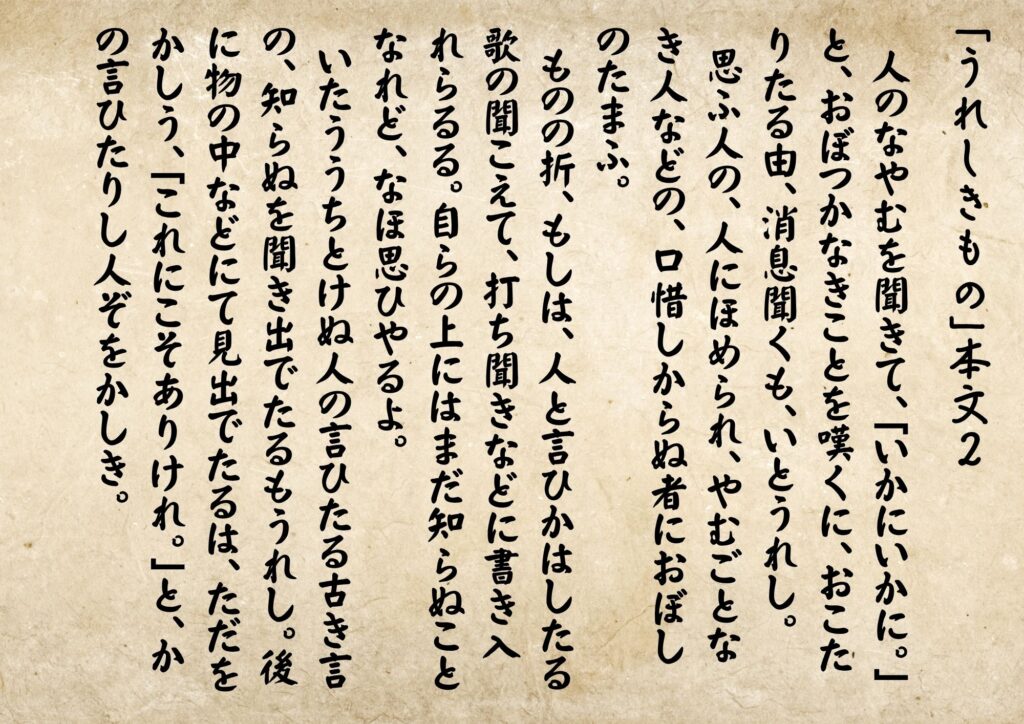 「うれしきもの」本文２
人のなやむを聞きて、「いかにいかに。」
と、おぼつかなきことを嘆くに、おこた
りたる由、消息聞くも、いとうれし。
思ふ人の、人にほめられ、やむごとな
き人などの、口惜しからぬ者におぼし
のたまふ。
ものの折、もしは、人と言ひかはしたる
歌の聞こえて、打ち聞きなどに書き入
れらるる。自らの上にはまだ知らぬこと
なれど、なほ思ひやるよ。
いたううちとけぬ人の言ひたる古き言
の、知らぬを聞き出でたるもうれし。後
に物の中などにて見出でたるは、ただを
かしう、「これにこそありけれ。」と、か
の言ひたりし人ぞをかしき。